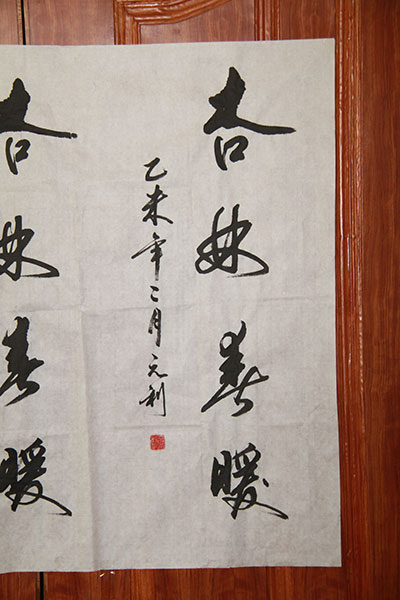 杏林春暖
乙未年二月元利
杏林春暖